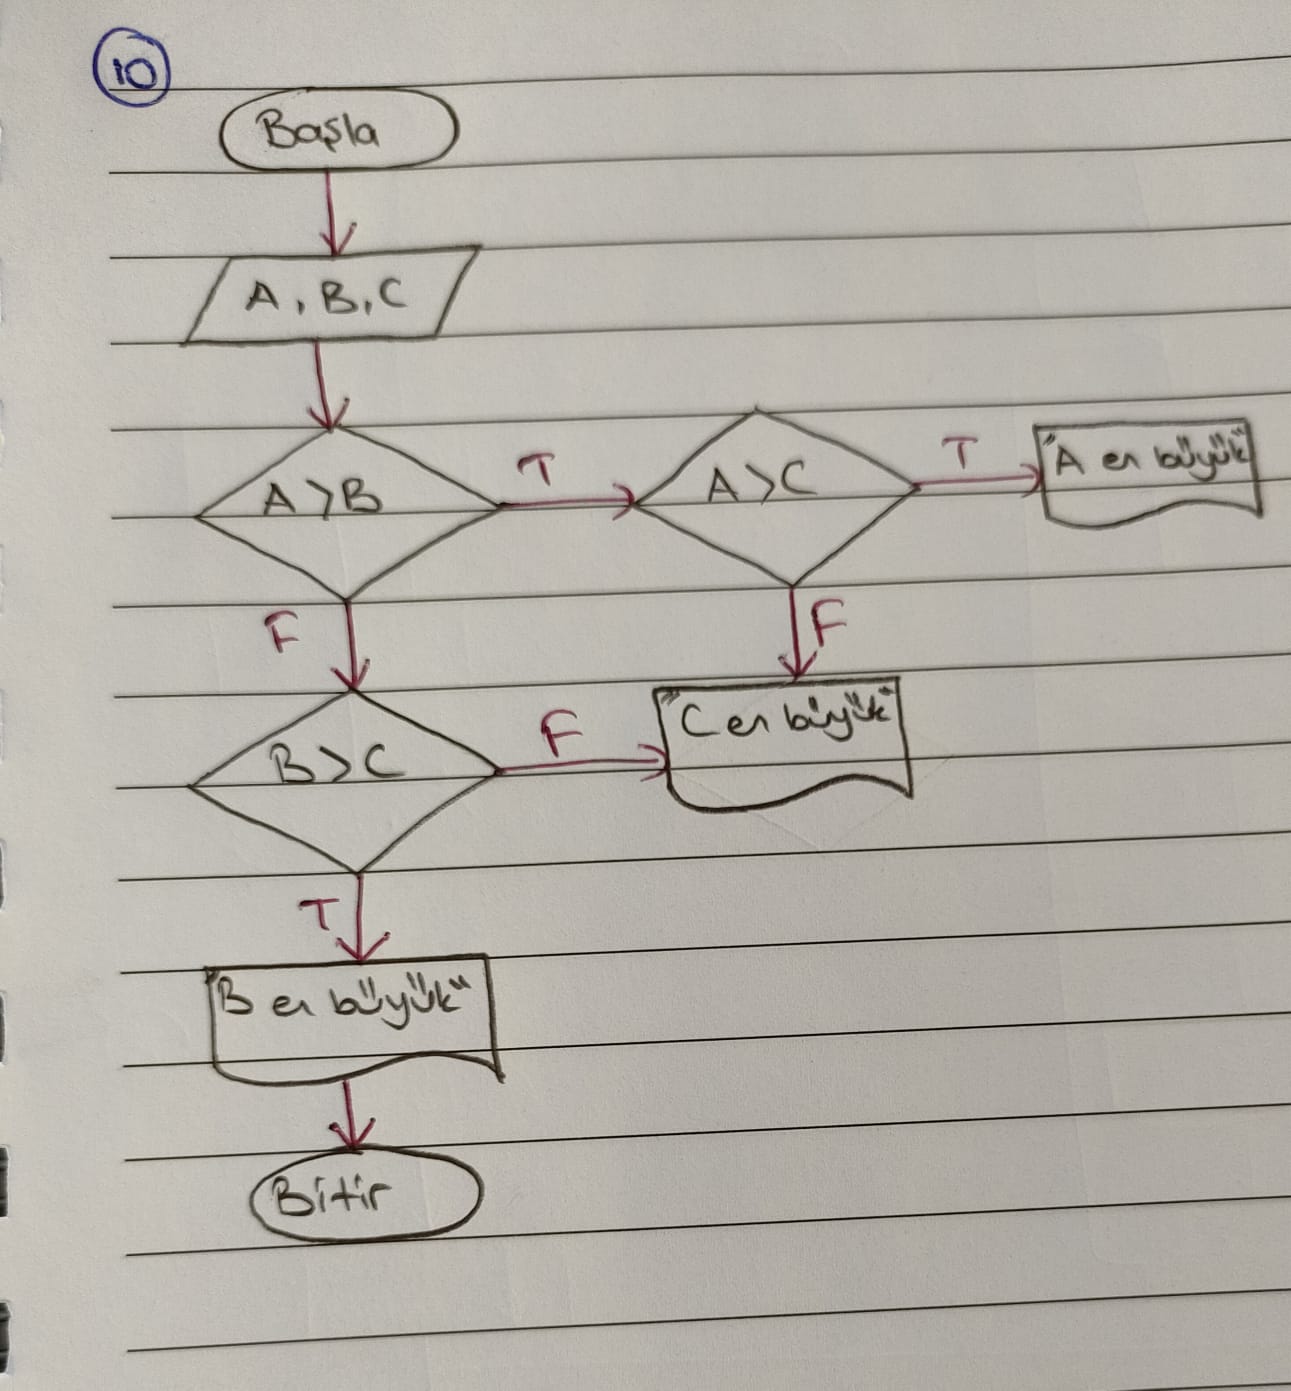 10
Başla
A, B, C
A>B
T
A>C
T
"A en büyük"
F
F
B>C
F
"C en büyük"
T
"B en büyük"
Bitir